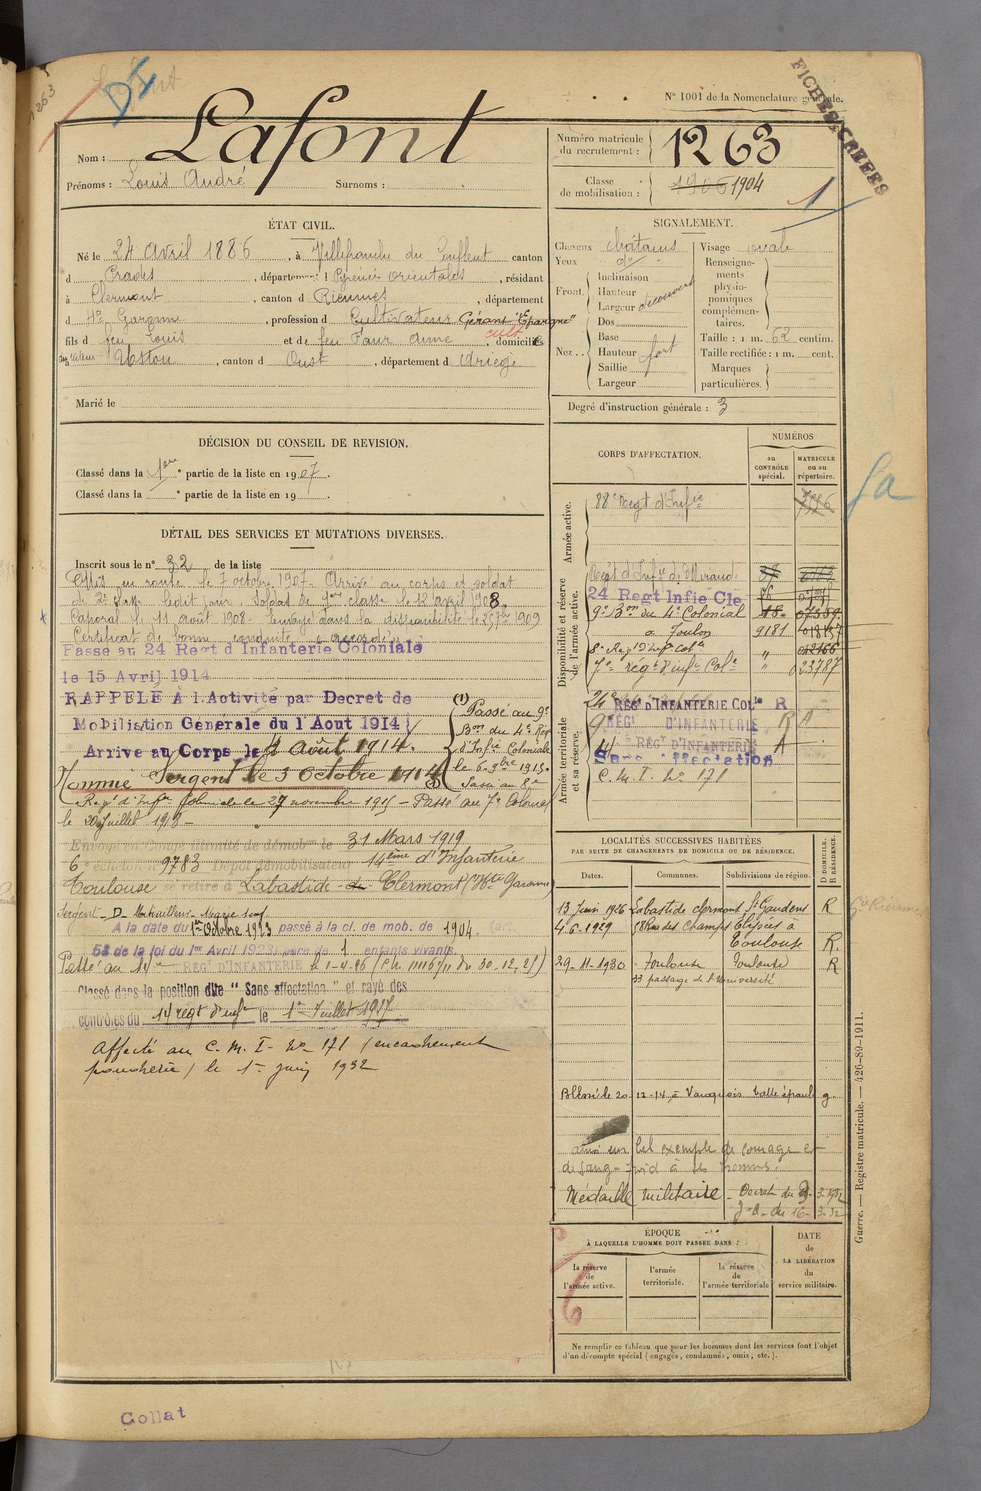 263
Lafont
DI
N° 1001 de la Nomenclature générale.
FICHES CREEES
Nom : Lafont
Prénoms : Louis André Surnoms :
Numéro matricule du recrutement : 1263
Classe de mobilisation : 1906 1904
1
ÉTAT CIVIL.
Né le 24 avril 1886, à Villefranche du Conflent canton
d Prades, département d Pyrénées orientales, résidant
à Clermont, canton d Rieumes, département
d Hte Garonne, profession d Cultivateur Gérant "Epargne"
cult
fils d feu Louis et de feu Faur Anne, domiciliés
Ustou, canton d Oust, département d Ariège
Marié le
SIGNALEMENT.
Cheveux châtains Visage ovale
Yeux do
Front. Inclinaison
Hauteur
Largeur découvert
Nez. Dos
Base
Hauteur fort
Saillie
Largeur
Renseignements physionomiques complémentaires.
Taille : 1 m. 62 centim.
Taille rectifiée : 1 m. cent.
Marques particulières.
Degré d'instruction générale : 3
DÉCISION DU CONSEIL DE REVISION.
Classé dans la 1ère partie de la liste en 1907.
Classé dans la e partie de la liste en 19
DÉTAIL DES SERVICES ET MUTATIONS DIVERSES.
Inscrit sous le n° 32 de la liste
Mis en route le 7 octobre 1907. Arrivé au corps et soldat
de 2e classe ledit jour. Soldat de 1ère classe le 12 avril 1908.
Caporal le 11 août 1908. Envoyé dans la disponibilité le 25 7bre 1909
Certificat de bonne conduite accordé.
Passé au 24 Regt d Infanterie Coloniale
le 15 Avril 1914
RAPPELÉ À l'Activité par Decret de
Mobilisation Générale du 1 Aout 1914
Arrive au Corps le 4 août 1914.
Nommé Sergent le 3 Octobre 1914
(1) Passé au 9e
Bon du 4e Rgt
d'Infie Coloniale
le 6 9bre 1915.
Passé au 8e
Regt d'Infie Coloniale le 27 novembre 1915 - Passé au 7e Colonial
le 20 Juillet 1918 -
Envoyé en Congé illimité de démobon le 31 Mars 1919
6e échelon n° 9783 Dépôt démobilisateur 14ème d'Infanterie
Toulouse se retire à Labastide Clermont (Hte Garonne)
A la date du 1er Octobre 1923 passé à la cl. de mob. de 1904. (art.
58 de la loi du 1er Avril 1923) père de 1 enfants vivants.
Passé au 14e REGt D'INFANTERIE le 1-4-26
Classé dans la position dite " Sans affectation " et rayé des
contrôles du 14 régt d'infie le 1er Juillet 1927
Affecté au C. M. I. No 171 (encaissement
poudrerie) le 1er juin 1932
CORPS D'AFFECTATION.
NUMÉROS
au CONTRÔLE spécial.
MATRICULE ou au répertoire.
Armée active.
88e Regt d'Infie
Disponibilité et réserve de l'armée active.
Regt d'Infie de Mirande
24 Regt Infie Cle
9e Bon du 4e Colonial 07359
à Toulon 9181
8e Regt Infie Cole " 012166
7e régt d'infie Cole " 023787
Armée territoriale et sa réserve.
24e REGt D'INFANTERIE COLle R
9 REGt D'INFANTERIE RA
14 REGt D'INFANTERIE A
Sans affectation
C. M. I. No 171
Ga
LOCALITÉS SUCCESSIVES HABITÉES
PAR SUITE DE CHANGEMENTS DE DOMICILE OU DE RÉSIDENCE.
Dates. Communes. Subdivisions de région. D DOMICILE. R RÉSIDENCE.
13 Juin 1926 Labastide clermont St Gaudens R
4-6-1929 58 Rue des Champs Elysées à
Toulouse R.
29-11-1930 Toulouse Toulouse R
33 passage de l'Université
Blessé le 20-12-14, à Vauquois balle épaule g.
bel exemple de courage et
de sang-froid à ses hommes.
Médaille militaire - Decret du 3-3-1932
J.O. du 16-3-32
ÉPOQUE
À LAQUELLE L'HOMME DOIT PASSER DANS :
la réserve de l'armée active.
l'armée territoriale.
la réserve de l'armée territoriale
DATE de LA LIBÉRATION du service militaire.
Ne remplir ce tableau que pour les hommes dont les services font l'objet
d'un décompte spécial (engagés, condamnés, omis, etc.).
Guerre. — Registre matricule. — 426-89-1911.
Collat